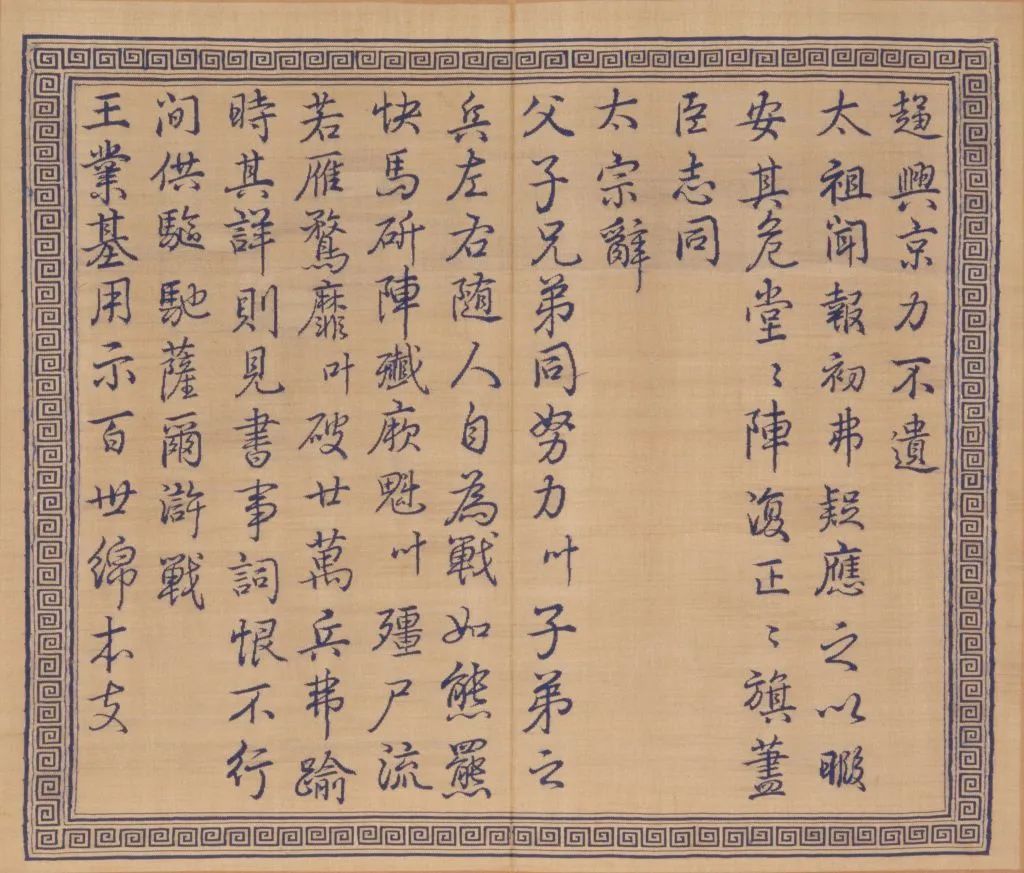 趨興京力不遺
太祖聞報初弗疑應之以暇
安其危堂〻陣復正〻旗蓋
臣志同
太宗辭
父子兄弟同努力叶子弟之
兵左右随人自為戰如熊羆
快馬斫陣殲厥魁叶殭尸流
若雁鶩靡叶破廿萬兵弗踰
時其詳則見書事詞恨不行
間供驅馳薩爾滸戰
王業基用示百世綿本支